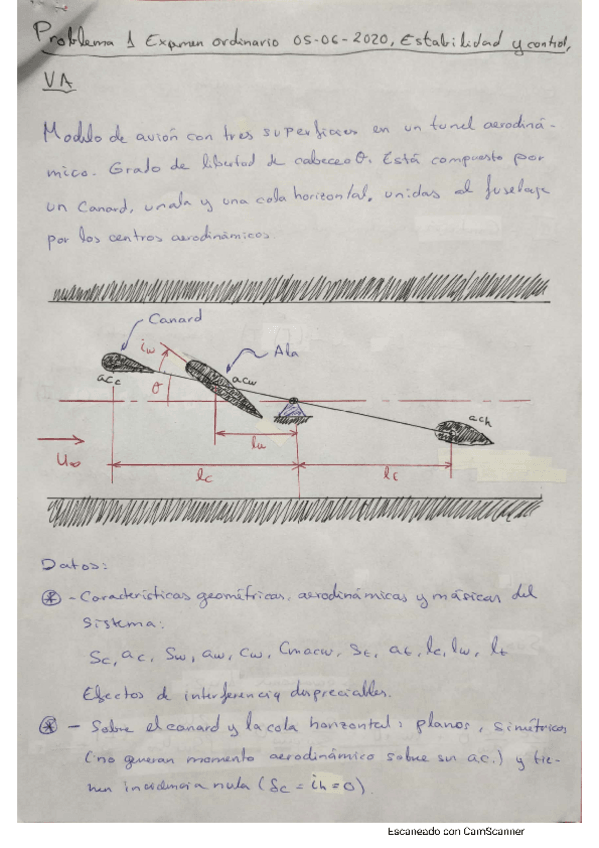 Problema 1 Examen ordinario 05-06-2020, Estabilidad y control,
VA
Modelo de avión con tres superficies en un tunel aerodiná-
mico. Grado de libertad de cabeceo θ. Está compuesto por
un Canard, un ala y una cola horizontal, unidas al fuselaje
por los centros aerodinámicos.
Canard
iw
Ala
acc
θ
acw
ach
U∞
lw
lc
lt
Datos:
⊛ - Características geométricas, aerodinámicas y másicas del
sistema:
Sc, ac, Sw, aw, cw, Cmacw, St, at, lc, lw, lt
Efectos de interferencia despreciables.
⊛ - Sobre el canard y la cola horizontal: planos, simétricos
(no generan momento aerodinámico sobre sus ac.) y tie-
nen incidencia nula (δc = ih = 0).
Escaneado con CamScanner